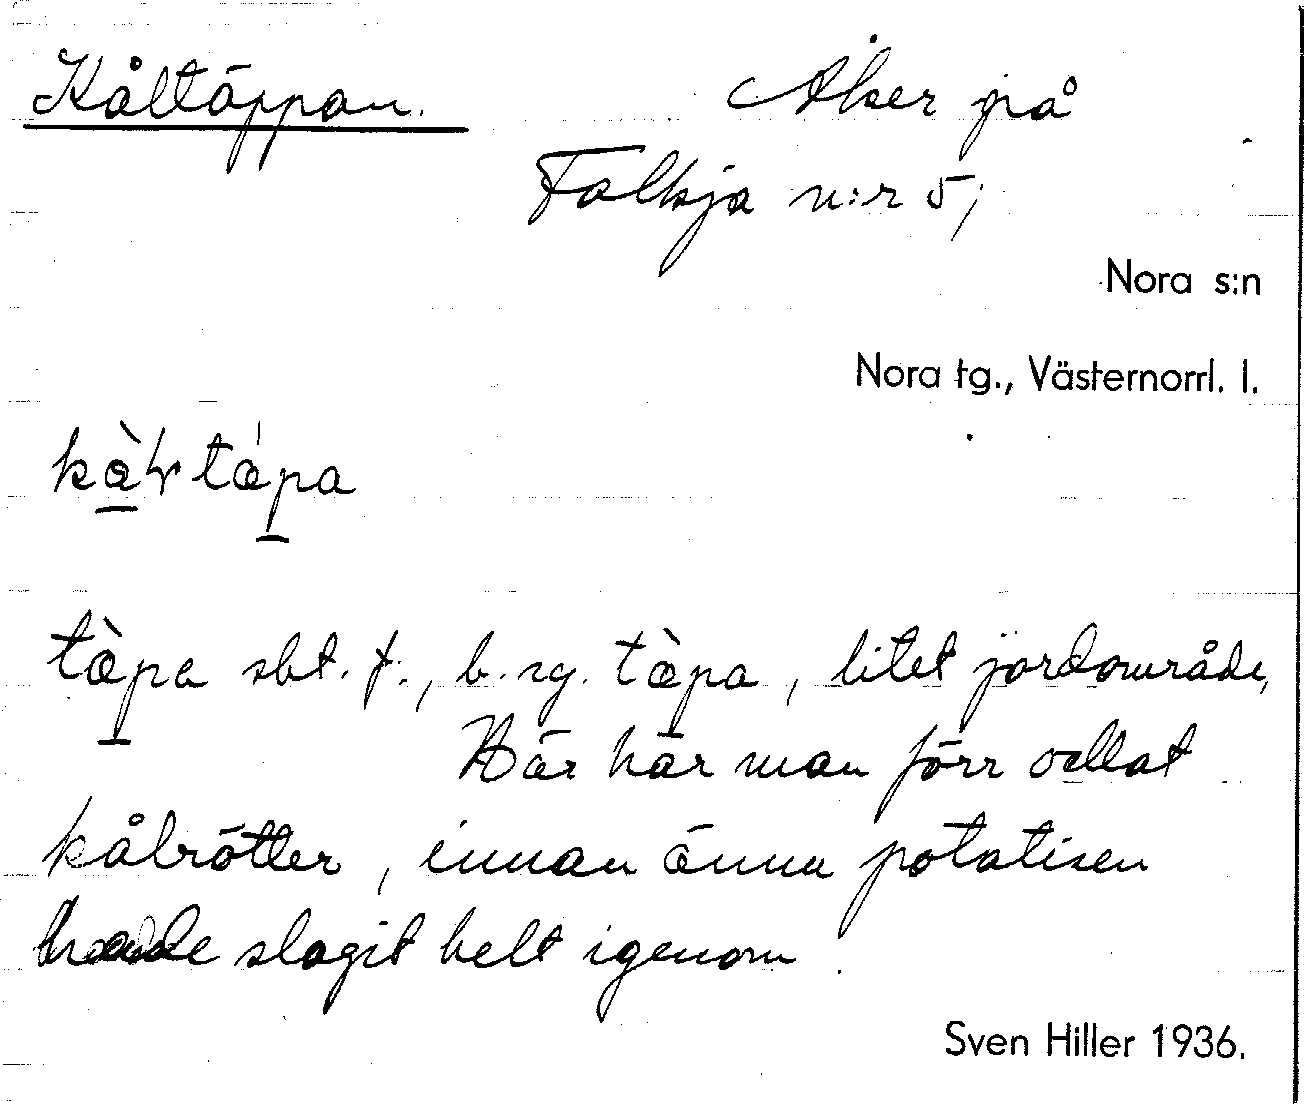 Kåltäppan. Åker på
Falkja n:r 5,
Nora s:n
Nora tg., Västernorrl. l.
tæ̀pa sbt. f., b. sg. tæ̀pa, litet jordområde,
Här har man förr odlat
kålrötter, innan ännu potatisen
hade slagit helt igenom.
Sven Hiller 1936.